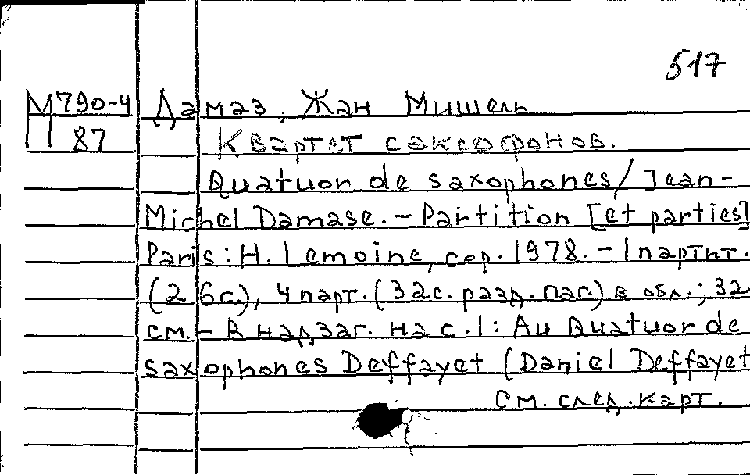 517
М790-4 Дамаз, Жан Мишель
87 Квартет саксофонов.
Quatuor de saxophones / Jean-
Michel Damase. - Partition [et parties]
Paris: H. Lemoine, cop. 1978. - 1 партит.
(26с.), 4 парт. (32с. разд. паг.) в обл.; 32
см. - В надзаг. на с. 1: Au Quatuor de
saxophones Deffayet (Daniel Deffayet
См. след. карт.